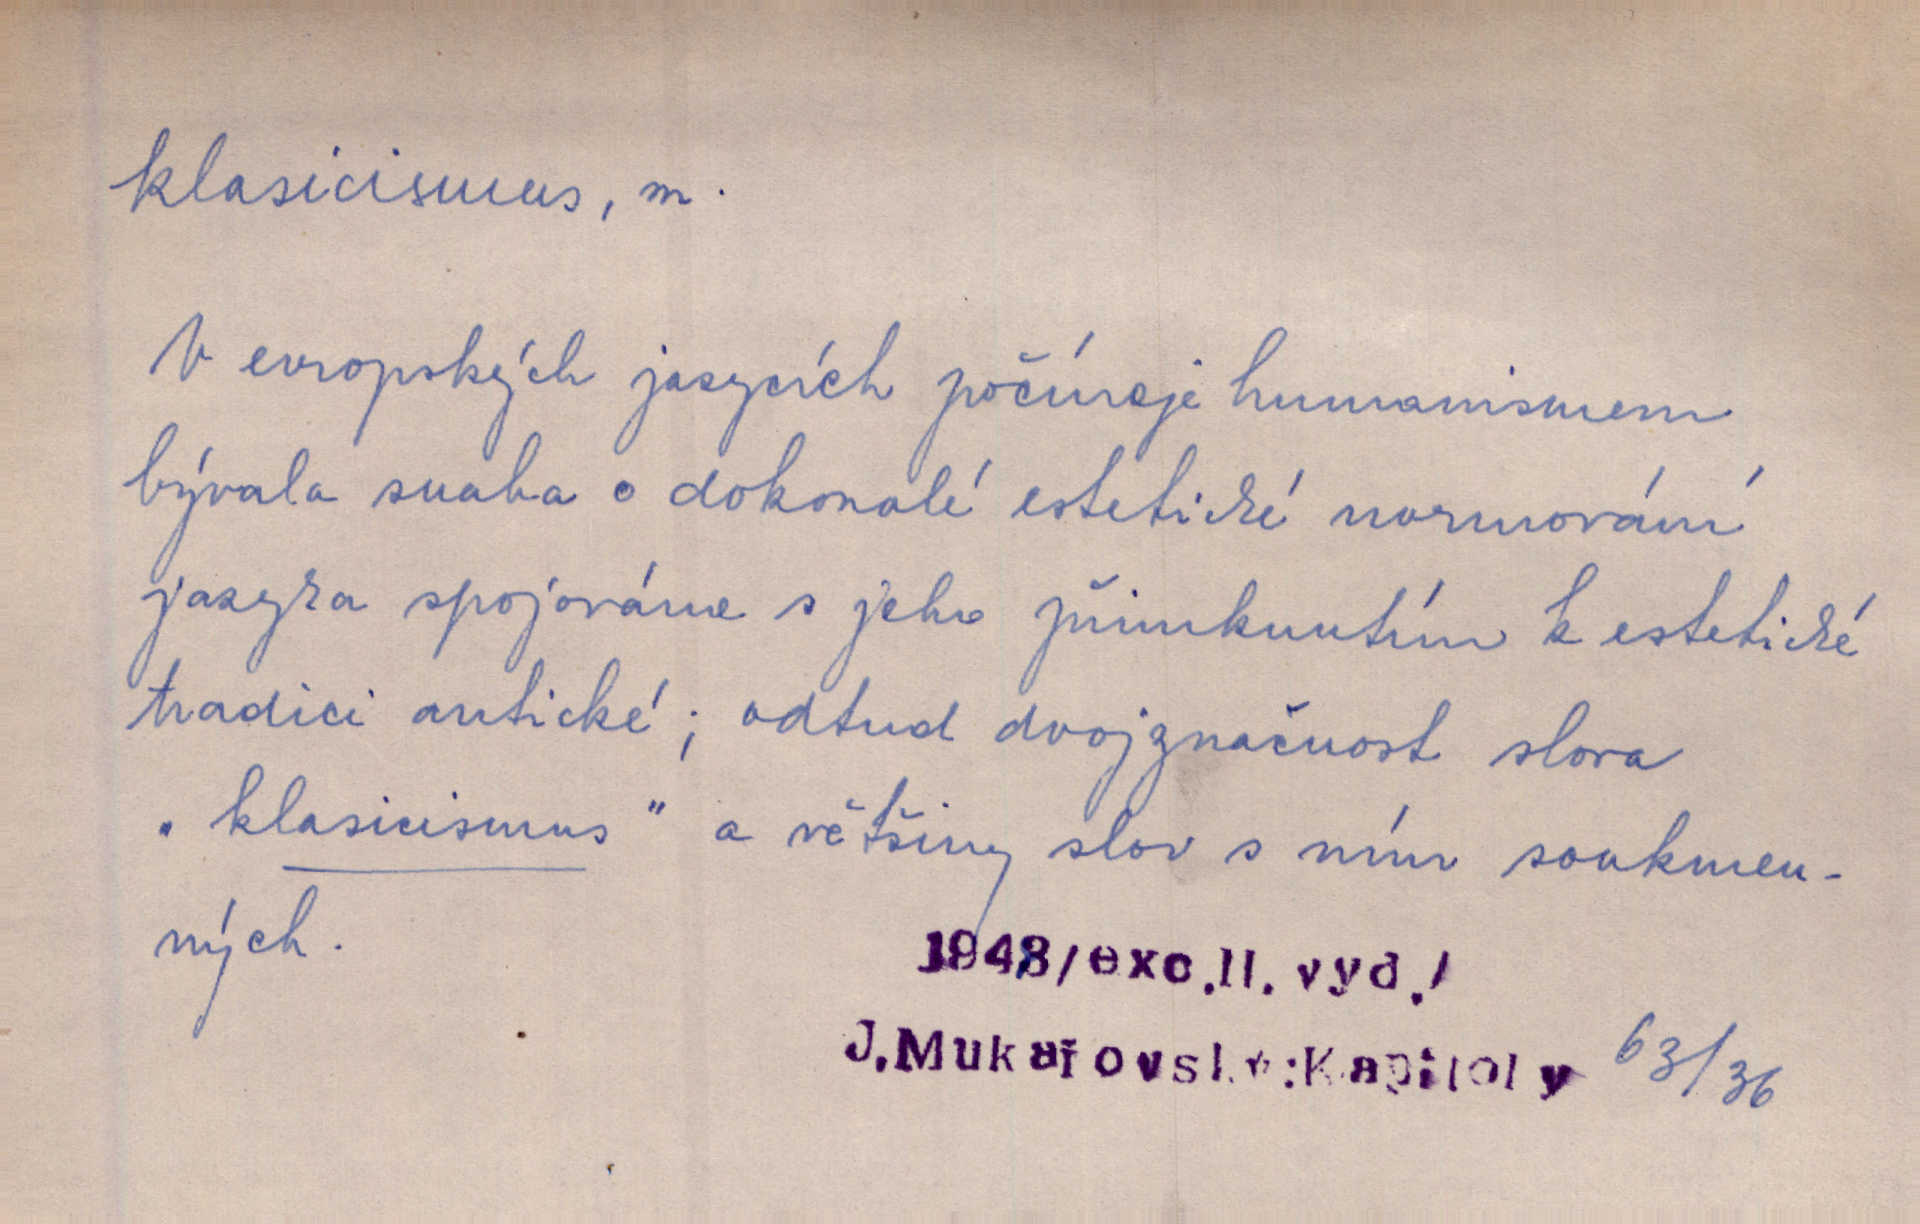 klasicismus, m.
V evropských jazycích počínaje humanismem
bývala snaha o dokonalé estetické normování
jazyka spojována s jeho přimknutím k estetické
tradici antické; odtud dvojznačnost slova
„klasicismus" a většiny slov s ním soukmen-
ných.
1948/exc.II. vyd./
J.Mukařovský:Kapitoly 63/36